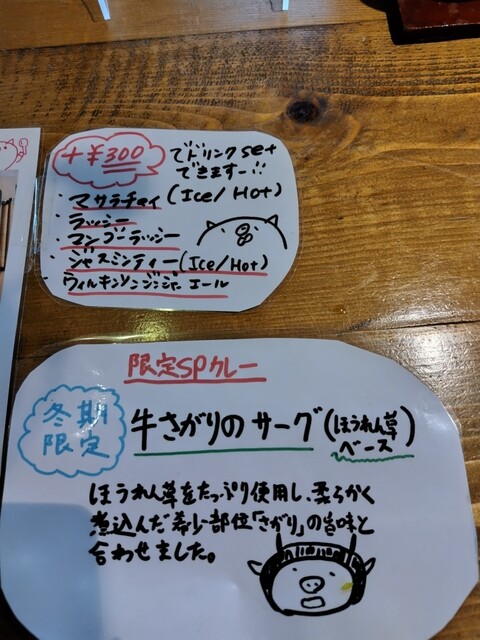 +¥300 でドリンクset
できますー!!
・マサラチャイ (Ice/Hot)
・ラッシー
マンゴーラッシー
・ジャスミンティー(Ice/Hot)
ウィルキンソンジンジャーエール
限定SPカレー
冬期
限定
牛さがりのサーグ(ほうれん草
ベース)
ほうれん草をたっぷり使用し、柔らかく
煮込んだ希少部位「さがり」の旨味と
合わせました。